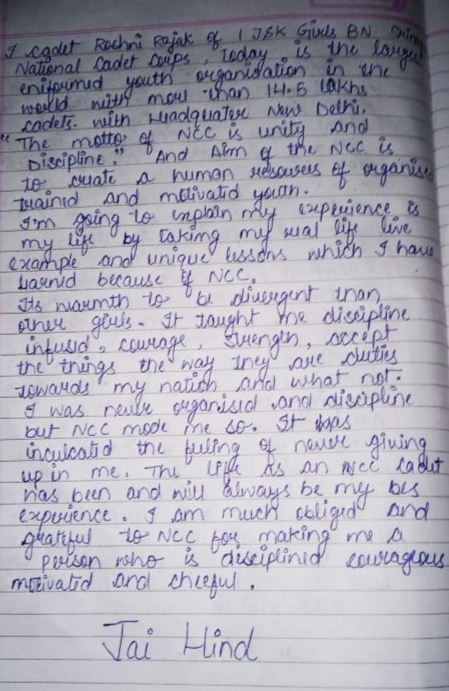 I cadet Roshni Rajak of 1 J&K Girls BN
National Cadet Corps, today is the largest
eniformed youth organisation in the
world with more than 14.5 lakhs
cadets. with Headquater New Delhi.
"The motto of NCC is unity and
Discipline". And Aim of the NCC is
to create a human resources of organised
trained and motivated youth.
I'm going to explain my experience is
my life by taking my real life live
example and unique lessons which I have
learnid because of NCC.
Its warmth to be divergent than
other girls. It taught me discipline
infused, courage, strength, accept
the things the way they are duties
towards my nation and what not.
I was never organised and discipline
but NCC made me so. It has
inculcatid the feeling of never giving
up in me. The life As an NCC cadet
has been and will always be my bes
experience. I am much obliged and
grateful to NCC for making me a
person who is disciplinid courageous
motivatid and cheeful.
Jai Hind